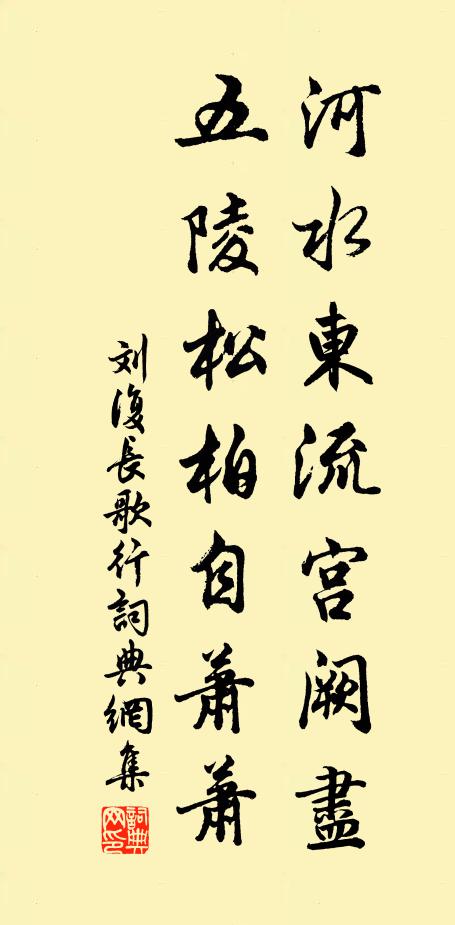 河水東流宫阙盡
五陵松柏自蕭蕭
刘復長歌行詞典網集
詞典网印